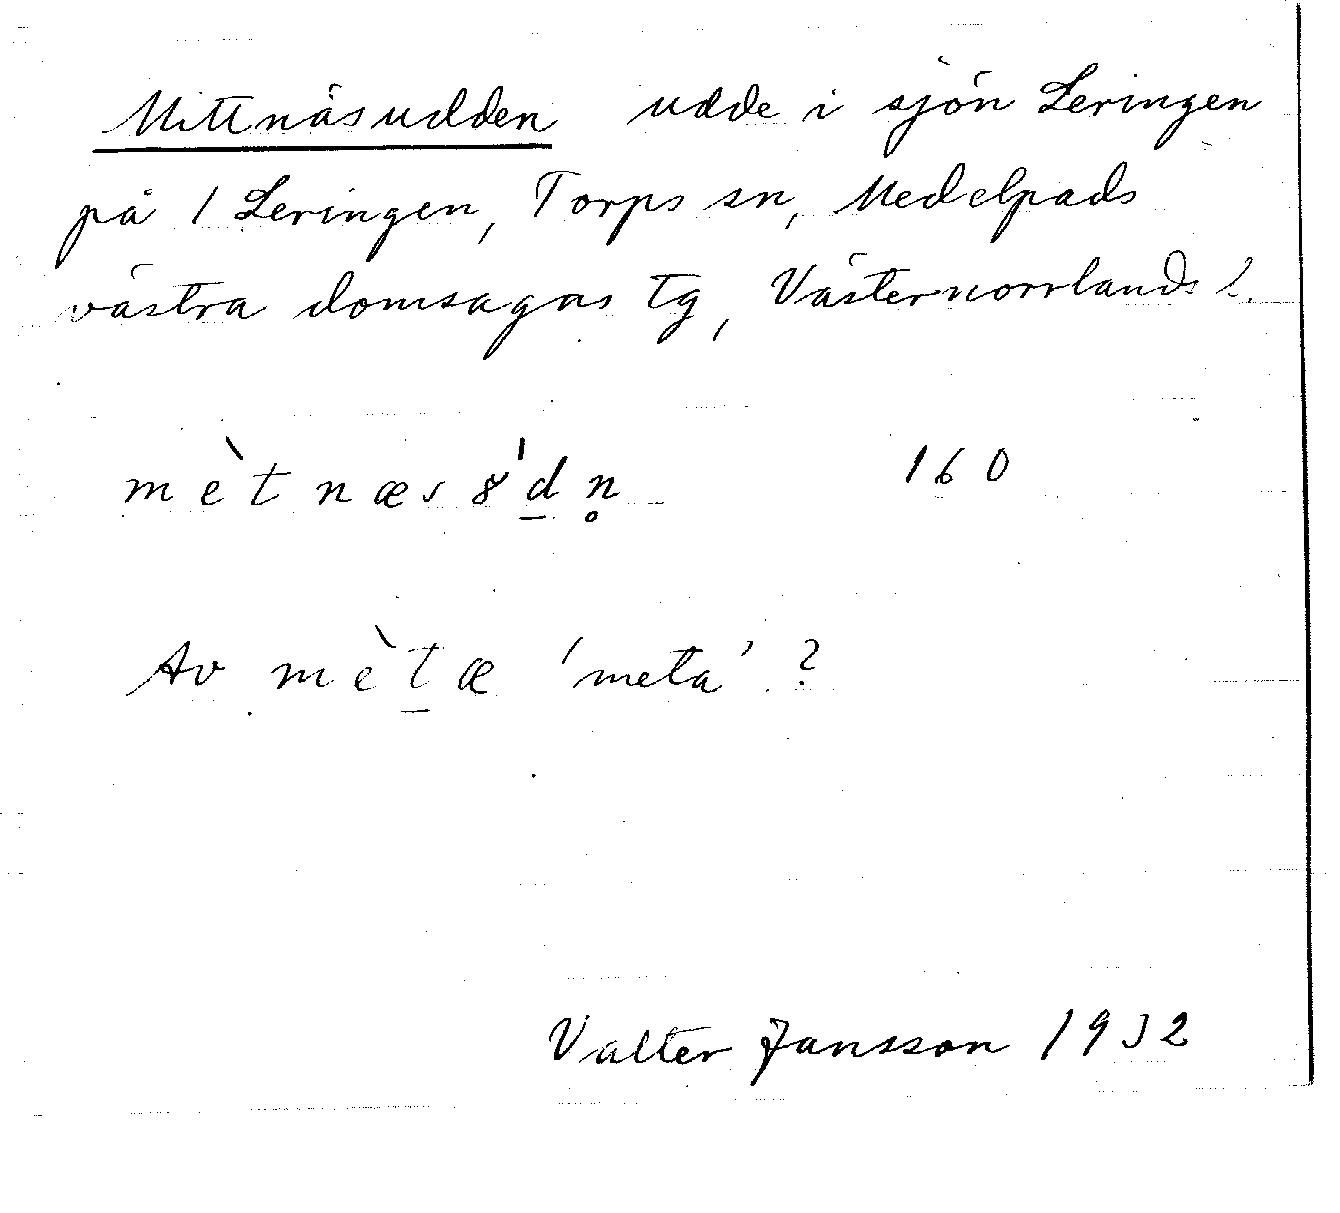 Mittnäsudden udde i sjön Leringen
på 1 Leringen, Torps sn, Medelpads
västra domsagas tg, Västernorrlands l.
mètnæs8'd̲n̥ 160
Av mèt̲æ 'meta' ?
Valter Jansson 1932